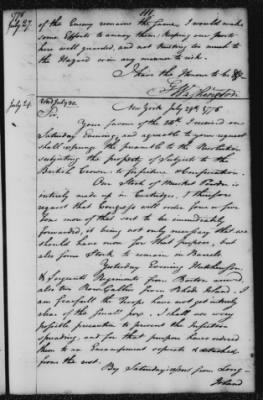 111
1776
July 27.
of the Enemy remains the same, I would make
some Efforts to annoy them, keeping our posts
here well guarded, and not trusting too much to
the Hazard or in any manner to risk.
I have the Honor to be &c
G. Washington
July 29.
New York July 29th 1776
Sir,
Your favor of the I received on
Saturday Evening, and agreeable to your request
shall expunge the preamble to the Resolution
subjecting the property of Subjects to the
British Crown to forfeiture & Confiscation.
Our Stock of Musket Powder is
intirely made up in Cartridges. I therefore
request that Congress will order four or five
Tons more of that sort to be immediately
forwarded, it being not only necessary that we
should have more for that purpose, but
also some Stock to remain in Barrels
Yesterday Evening Hutchinson
& Sergeants Regiments from Boston arrived,
also two Row Gallies from Rhode Island. I
am fearfull the Troops have not got intirely
clear of the Small pox. I shall use every
possible precaution to prevent the Infection
spreading, and for that purpose have ordered
them to an Encampment separate & detached
from the rest.
By Saturdays from Long
Island